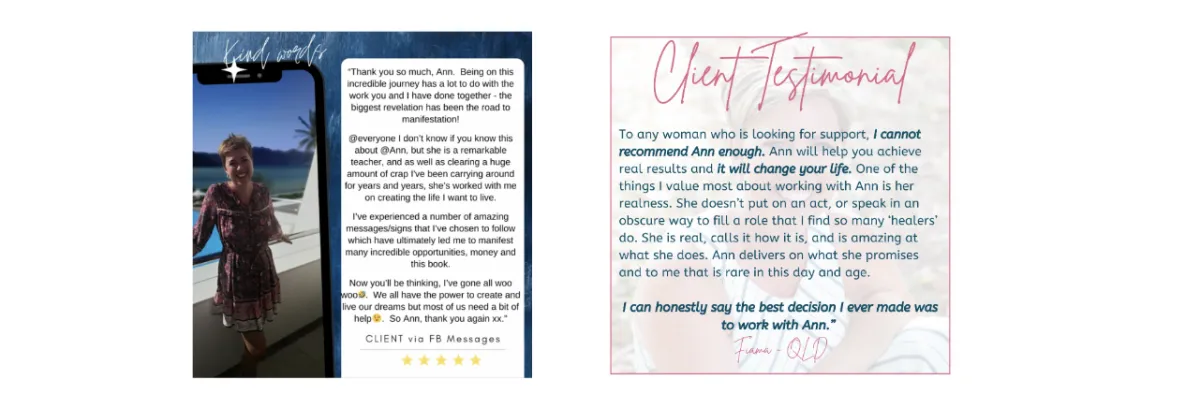 Kind words
"Thank you so much, Ann.  Being on this
incredible journey has a lot to do with the
work you and I have done together - the
biggest revelation has been the road to
manifestation!
@everyone I don't know if you know this
about @Ann, but she is a remarkable
teacher, and as well as clearing a huge
amount of crap I've been carrying around
for years and years, she's worked with me
on creating the life I want to live.
I've experienced a number of amazing
messages/signs that I've chosen to follow
which have ultimately led me to manifest
many incredible opportunities, money and
this book.
Now you'll be thinking, I've gone all woo
woo🤣.  We all have the power to create and
live our dreams but most of us need a bit of
help😉.  So Ann, thank you again xx."
CLIENT via FB Messages
Client Testimonial
To any woman who is looking for support, I cannot
recommend Ann enough. Ann will help you achieve
real results and it will change your life. One of the
things I value most about working with Ann is her
realness. She doesn't put on an act, or speak in an
obscure way to fill a role that I find so many 'healers'
do. She is real, calls it how it is, and is amazing at
what she does. Ann delivers on what she promises
and to me that is rare in this day and age.
I can honestly say the best decision I ever made was
to work with Ann."
- QLD